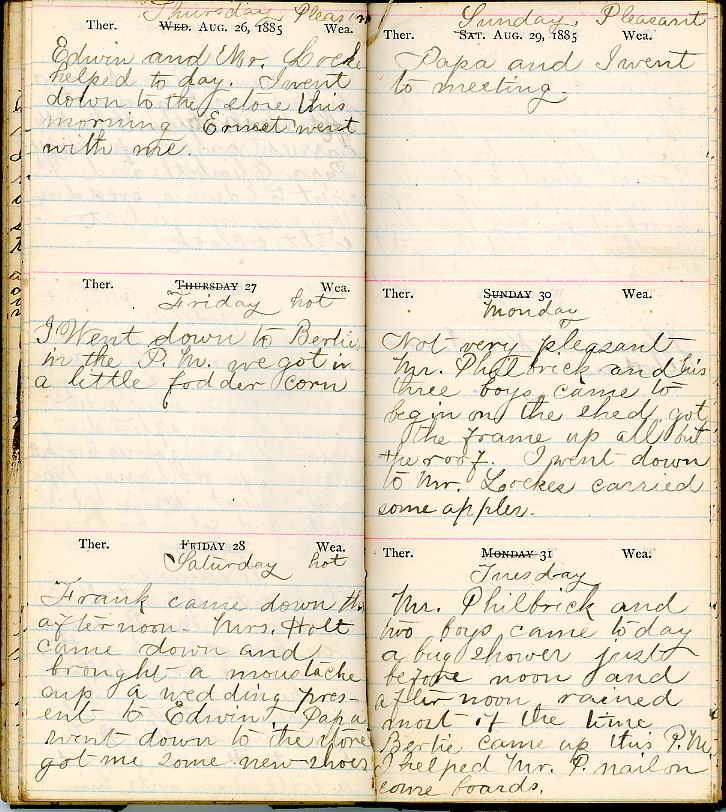 Thursday Pleasant
Ther. WED. AUG. 26, 1885 Wea.
Edwin and Mr. Locke
helped to day. I went
down to the store this
morning Ernest went
with me.
Ther. THURSDAY 27 Wea.
Friday hot
I Went down to Bertie
in the P.M. we got in
a little fodder corn
Ther. FRIDAY 28 Wea.
Saturday hot
Frank came down this
afternoon. Mrs. Holt
came down and
brought a moustache
cup a wedding pres-
ent to Edwin. Papa
went down to the store
got me some new shoes
Sunday. Pleasant
Ther. SAT. AUG. 29, 1885 Wea.
Papa and I went
to meeting.
Ther. SUNDAY 30 Wea.
Monday
Not very pleasant
Mr. Philbrick and his
three boys came to
begin on the shed, got
the frame up all but
the roof. I went down
to Mr. Lockes carried
some apples.
Ther. MONDAY 31 Wea.
Tuesday
Mr. Philbrick and
two boys came to day
a big shower just
before noon and
after noon rained
most of the time
Bertie came up this P.M.
I helped Mr. P. nail on
some boards.